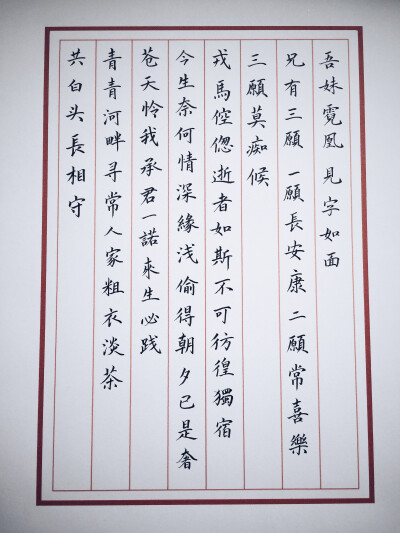 吾妹霓凰 見字如面
兄有三願 一願長安康 二願常喜樂
三願莫痴候
戎馬倥偬逝者如斯不可彷徨獨宿
今生奈何情深緣浅偷得朝夕已是奢
苍天怜我承君一諾來生必践
青青河畔寻常人家粗衣淡茶
共白头長相守